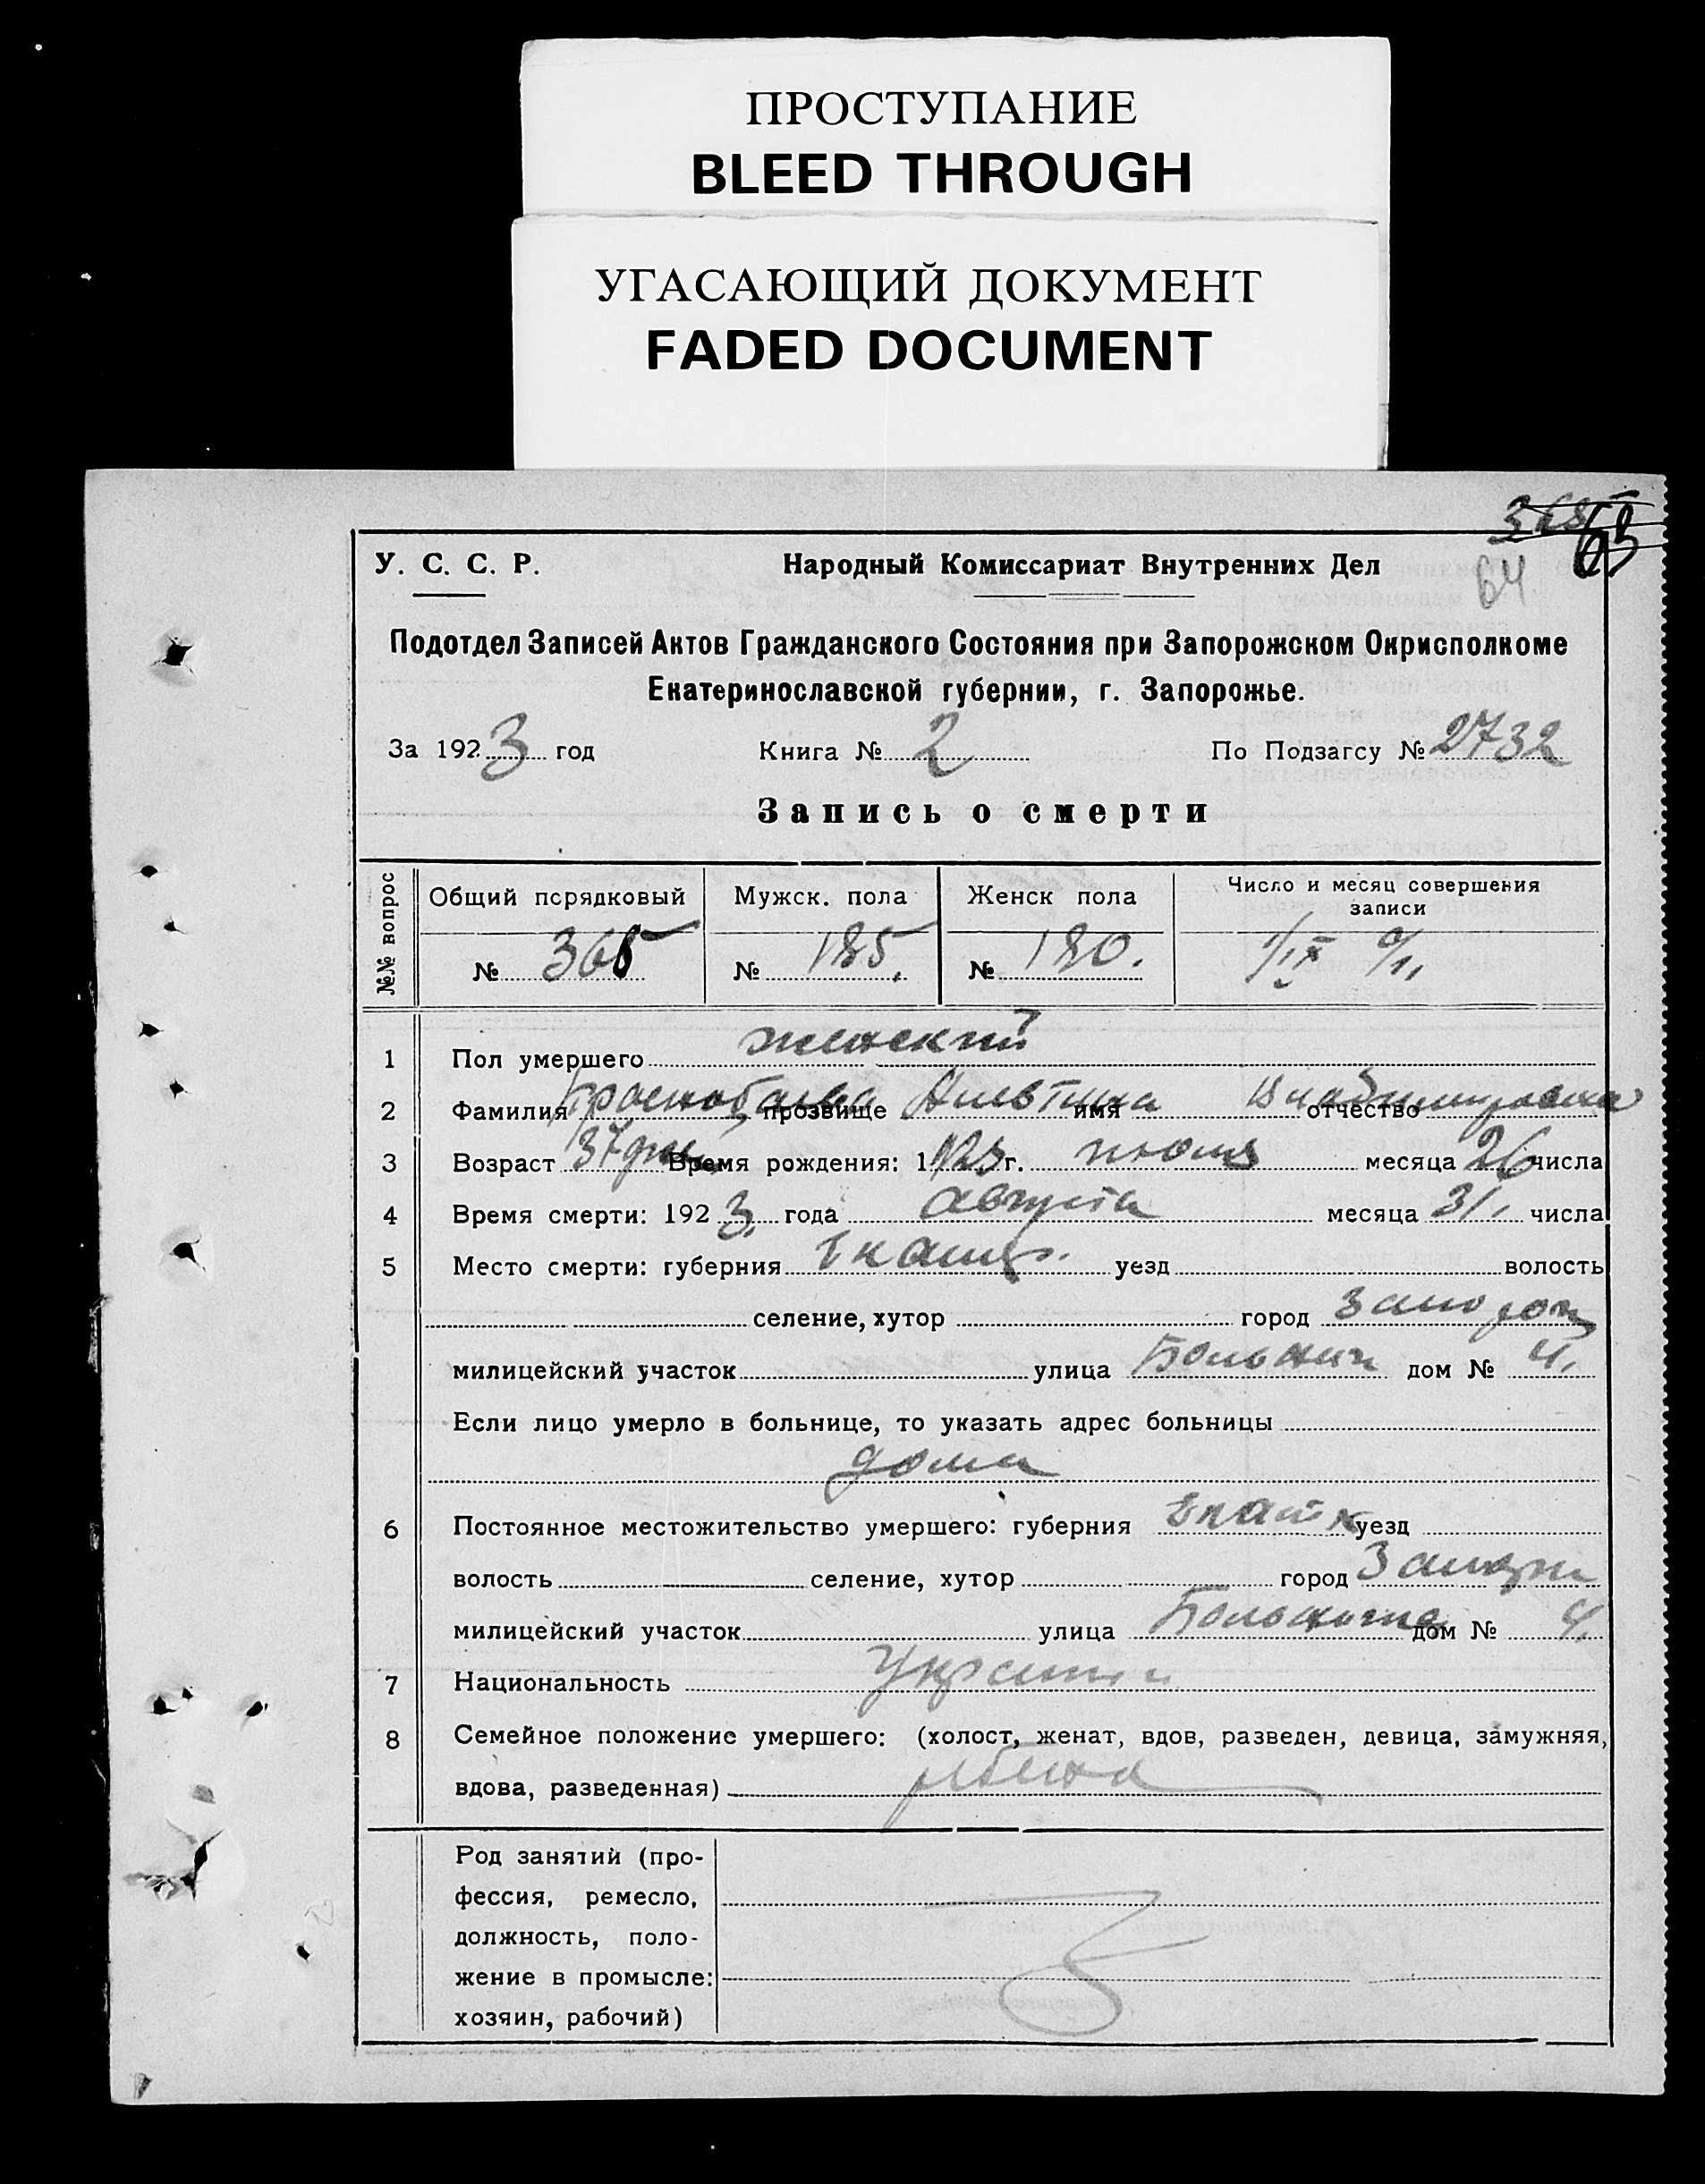 ПРОСТУПАНИЕ
BLEED THROUGH
УГАСАЮЩИЙ ДОКУМЕНТ
FADED DOCUMENT
63
64
У. С. С. Р. Народный Комиссариат Внутренних Дел
Подотдел Записей Актов Гражданского Состояния при Запорожском Окрисполкоме
Екатеринославской губернии, г. Запорожье.
За 1923 год Книга № 2 По Подзагсу № 2732
Запись о смерти
№№ вопрос Общий порядковый Мужск. пола Женск пола Число и месяц совершения
записи
№ 365 № 185. № 180. 1/IX
1 Пол умершего женский
2 Фамилия Краснобаева прозвище Алевтина имя Владимировна отчество
3 Возраст 37 дней Время рождения: 1923 г. июля месяца 26 числа
4 Время смерти: 1923. года августа месяца 31. числа
5 Место смерти: губерния Екатер. уезд волость
селение, хутор город Запорож
милицейский участок улица Больнич дом № 4.
Если лицо умерло в больнице, то указать адрес больницы
дома
6 Постоянное местожительство умершего: губерния Екат уезд
волость селение, хутор город
милицейский участок улица дом № 4.
7 Национальность
8 Семейное положение умершего: (холост, женат, вдов, разведен, девица, замужняя,
вдова, разведенная)
Род занятий (про-
фессия, ремесло,
должность, поло-
жение в промысле:
хозяин, рабочий)